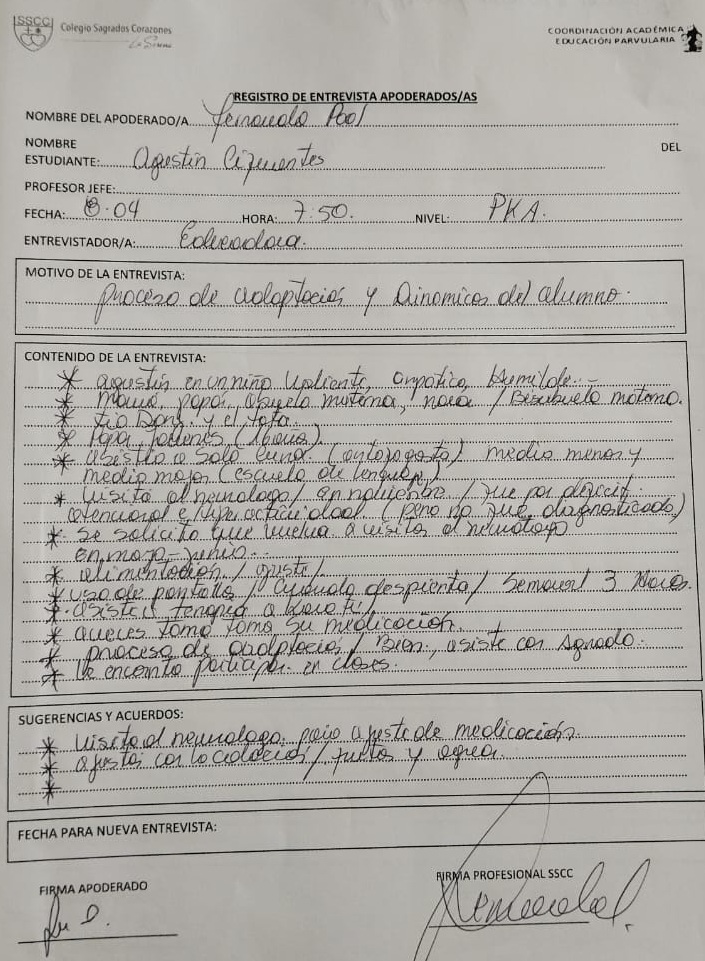 SSCC
Colegio Sagrados Corazones
La Serena
COORDINACIÓN ACADÉMICA
EDUCACIÓN PARVULARIA
REGISTRO DE ENTREVISTA APODERADOS/AS
NOMBRE DEL APODERADO/A Fernanda Pool
NOMBRE DEL
ESTUDIANTE: Agustín Cifuentes
PROFESOR JEFE:
FECHA: 8.04 HORA: 7:50. NIVEL: PKA.
ENTREVISTADOR/A: Educadora.
MOTIVO DE LA ENTREVISTA:
proceso de adaptación y Dinamicas del alumno.
CONTENIDO DE LA ENTREVISTA:
* agustín en un niño Valiente, empatico, humilde.-
* mamá, papá, abuela materna, nana / Bisabuela materna.
* tio y el tata.
* Papá,
* asistio a Sala cuna. (antofagasta) medio menor y
medio mayor (escuela de lenguaje)
* visita al neurologo / en noviembre / que por déficit
atencional e hiperactividad (pero no fue diagnosticado)
* se solicita que vuelva a visita al neurologo
en mayo - junio.
* alimentación /
* uso de pantalla / cuando despierta / Semanal 3 Horas.
* asiste a terapia
* toma su medicación.
* proceso de adaptación / Bien, asiste con agrado.
* le encanta participar en clases.
SUGERENCIAS Y ACUERDOS:
* visita al neurologo para ajuste de medicación.
* ajustar con la colación / fruta y agua.
*
FECHA PARA NUEVA ENTREVISTA:
FIRMA APODERADO
FIRMA PROFESIONAL SSCC